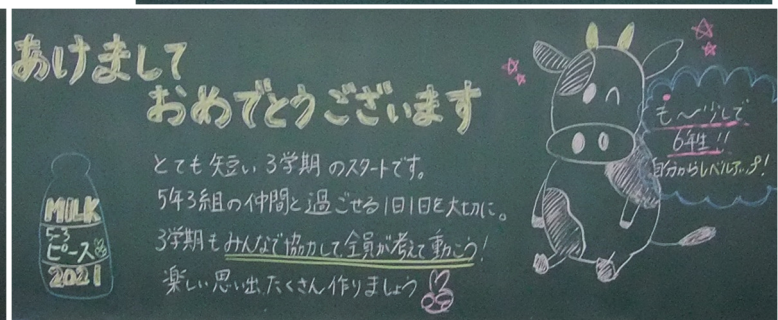 あけまして
おめでとうございます
とても短い3学期のスタートです。
5年3組の仲間と過ごせる1日1日を大切に。
3学期もみんなで協力して全員が考えて動こう!
楽しい思い出たくさん作りましょう
MILK
5-3
ピース
2021
も〜少しで
6年生!!
自分からレベルアップ!